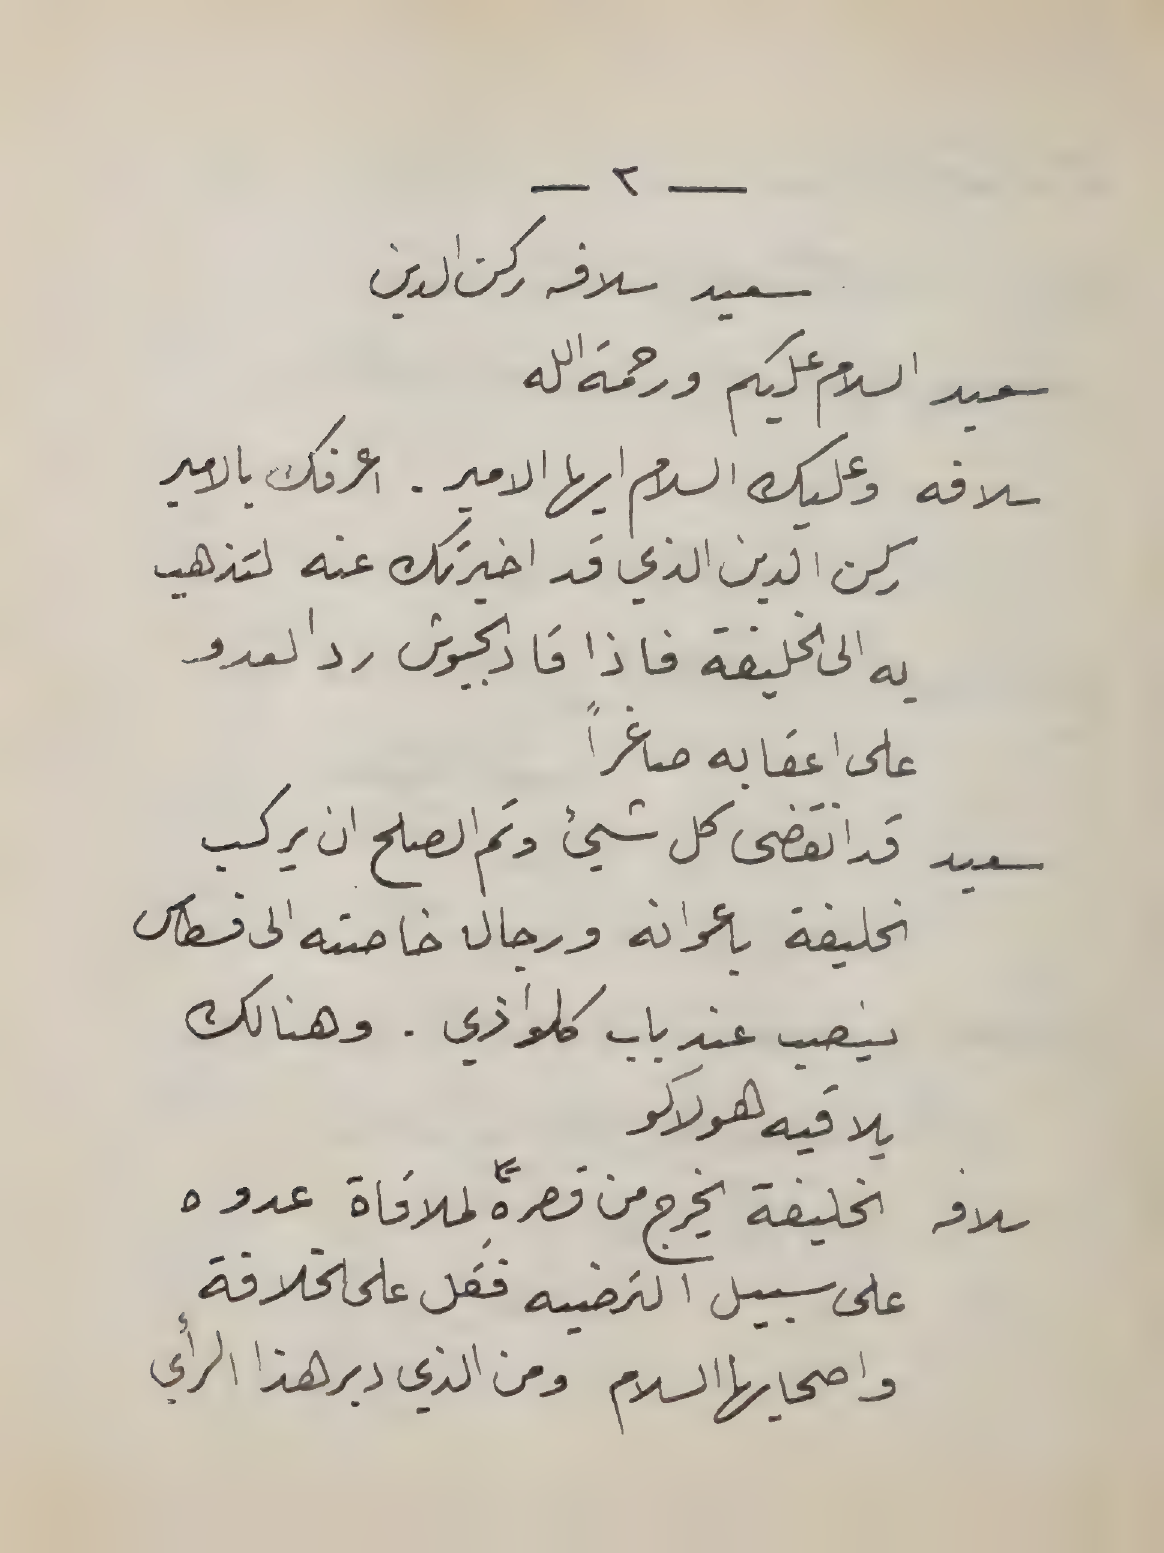 — ٢ —
سعيد سلافه ركن الدين
سعيد السلام عليكم ورحمة الله
سلافه وعليك السلام ايها الامير . اعرفك بالامير
ركن الدين الذي قد اخبرتك عنه لتذهب
به الى الخليفة فاذا قاد الجيوش رد العدو
على اعقابه صاغراً
سعيد قد انقضى كل شيئ وتم الصلح ان يركب
الخليفة باعوانه ورجال خاصته الى فسطاس
ينصب عند باب كلواذي . وهنالك
يلاقيه هولاكو
سلافه الخليفة يخرج من قصره لملاقاة عدوه
على سبيل الترضيه فقل على الخلافة
واصحابها السلام ومن الذي دبر هذا الرأي